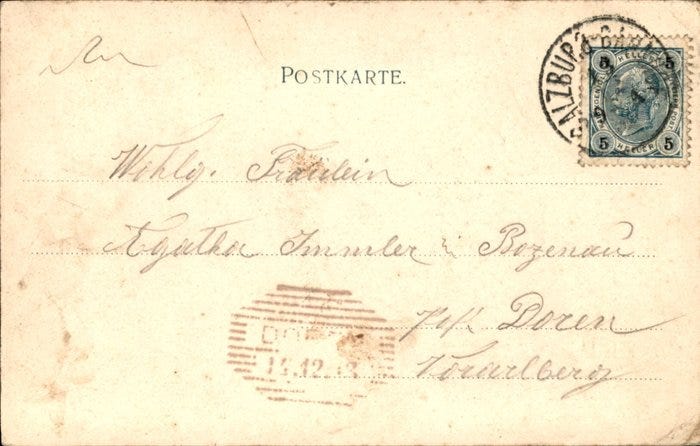 An
POSTKARTE.
SALZBURG 2 BAHNHOF
5 HELLER 5
5 HELLER 5
Wohlg. Fräulein
Agatha Immler in Bozenau
Post Doren
Vorarlberg
DOREN
14.12.